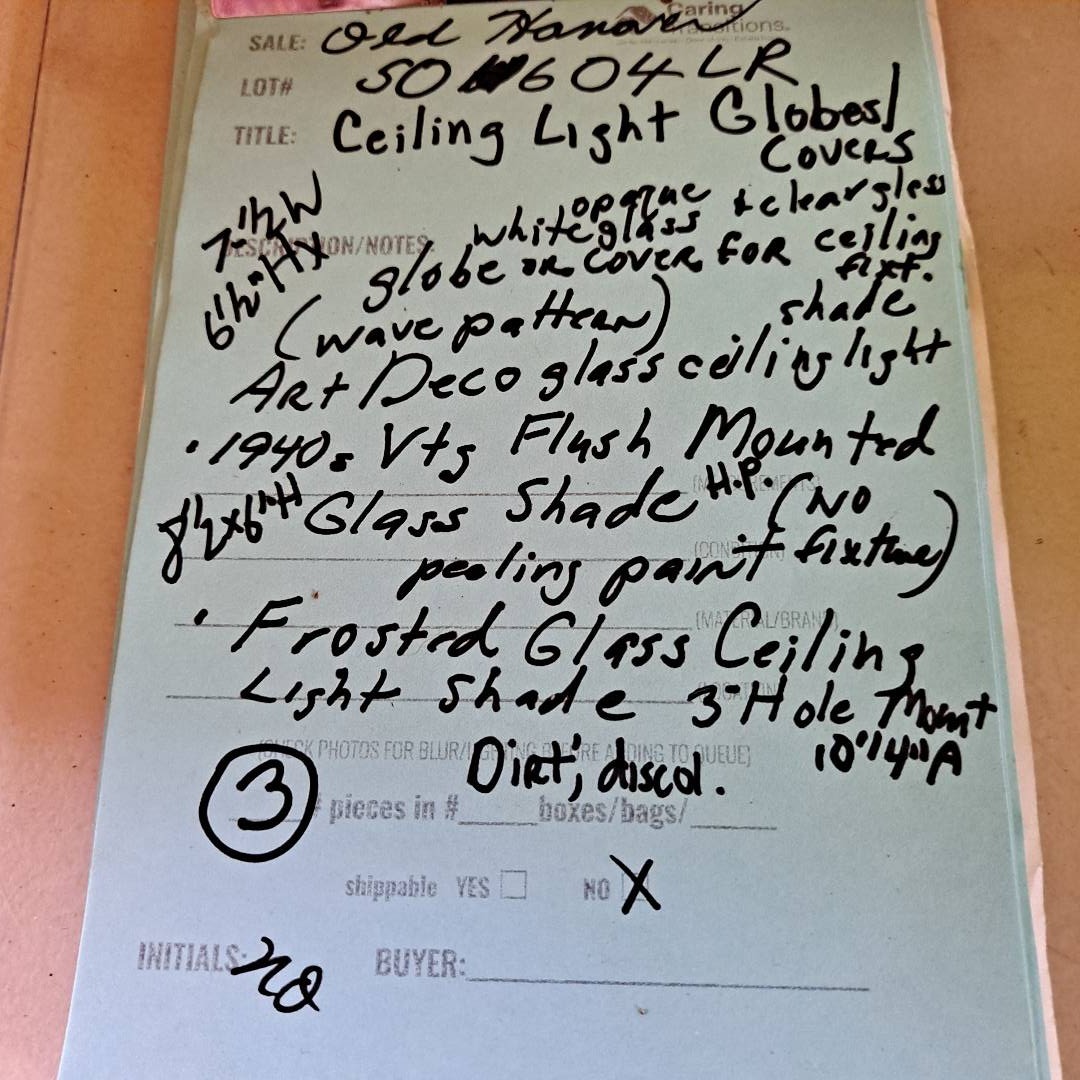 Caring Transitions.
SALE: Old Hanover
LOT# SO 604 LR
TITLE: Ceiling Light Globes/
Covers
7-1/2W
6 1/2"Hx
DESCRIPTION/NOTES:
opaque & clear glass
white glass
globe or cover for ceiling
fixt.
(wave pattern) shade
Art Deco glass ceiling light
• 1940s Vtg Flush Mounted
(MEASUREMENTS)
8 1/2x6"H Glass Shade H.P. (NO
(CONDITION)
peeling paint fixture)
(MATERIAL/BRAND)
• Frosted Glass Ceiling
(LOCATION)
Light Shade 3-Hole Mount
(CHECK PHOTOS FOR BLUR/LIGHTING BEFORE ADDING TO QUEUE)
Dirt, discol. 10"/4"
3 # pieces in #____boxes/bags/____
shippable YES NO X
INITIALS: BUYER: